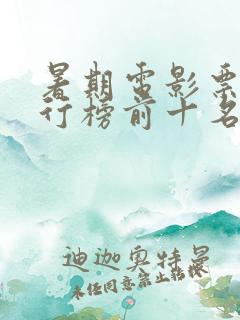 暑期电影票
行榜前十名
迪迦奥特曼
未经同意禁止转载